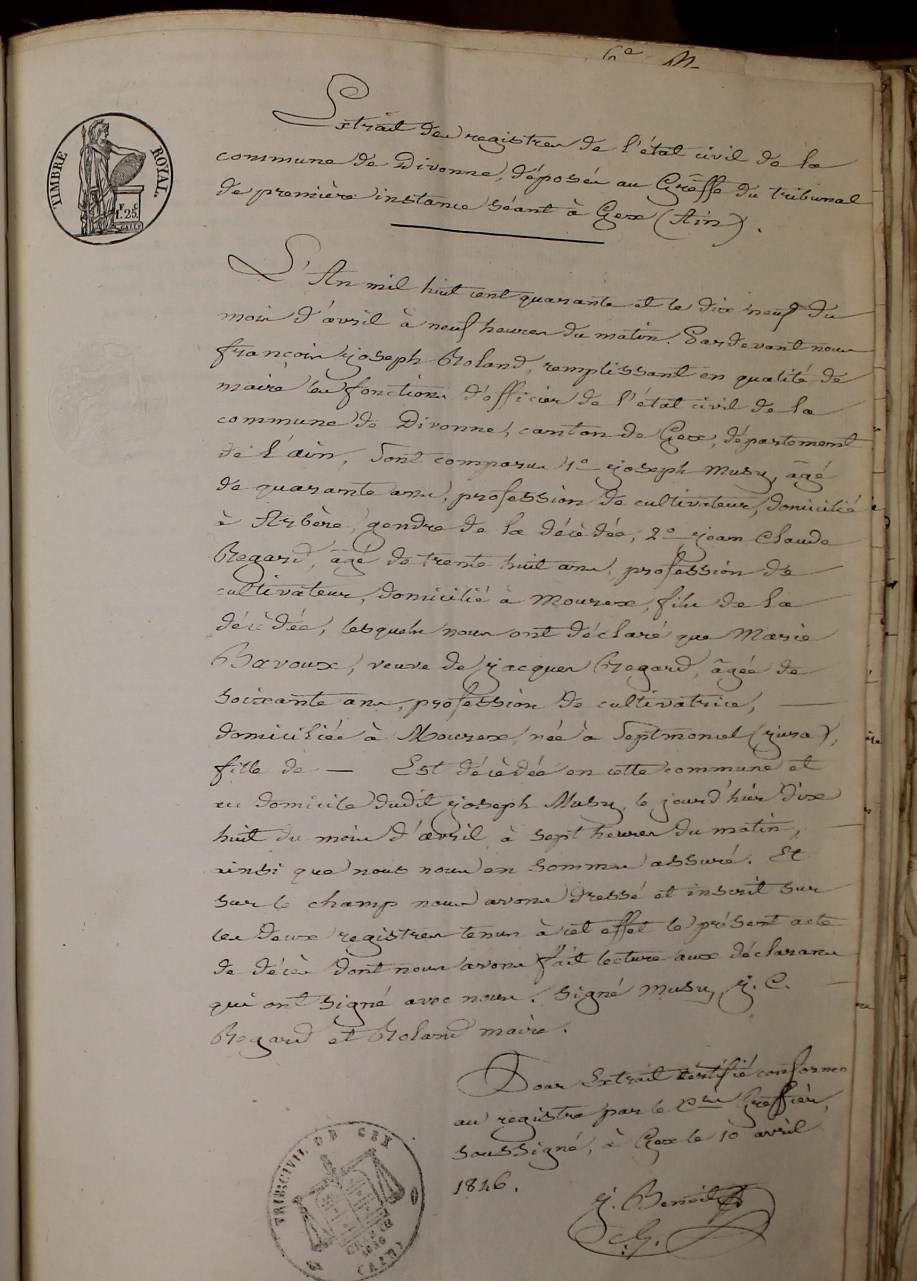 TIMBRE ROYAL
1 F. 25 C.
Extrait des registres de l'état civil de la
commune de Divonne, déposés au Grêffe du tribunal
de première instance séant à Gex (Ain).
L'An mil huit cent quarante et le dix neuf du
mois d'avril à neuf heures du matin. Pardevant nous
françois joseph Roland, remplissant en qualité de
maire les fonctions d'officier de l'état civil de la
commune de Divonne, canton de Gex, département
de l'ain, sont comparus 1º joseph Musy, âgé
de quarante ans, profession de cultivateur, domicilié
à Arbère, gendre de la décèdée, 2º jean Claude
Regard, âgé de trente huit ans, profession de
cultivateur, domicilié à Mourex, fils de la
décèdée, lesquels nous ont déclaré que Marie
Bavoux, veuve de jacques Regard, âgée de
soixante ans, profession de cultivatrice,
domiciliée à Mourex, née à Septmoncel (jura),
fille de — Est décèdée en cette commune et
au domicile dudit joseph Musy, le jourd'hier dix
huit du mois d'avril à sept heures du matin,
ainsi que nous nous en sommes assuré. Et
sur le champ nous avons dressé et inscrit sur
les deux registres tenus à cet effet le présent acte
de décès dont nous avons fait lecture aux déclarans
qui ont signé avec nous. signé Musy, J. C.
Regard et Roland maire.
Pour Extrait certifié conforme
au registre par le Cmis Greffier
soussigné, à Gex le 10 avril
1846.
J. Benoit
C.G.
TRIB: CIVIL DE GEX
(AIN)